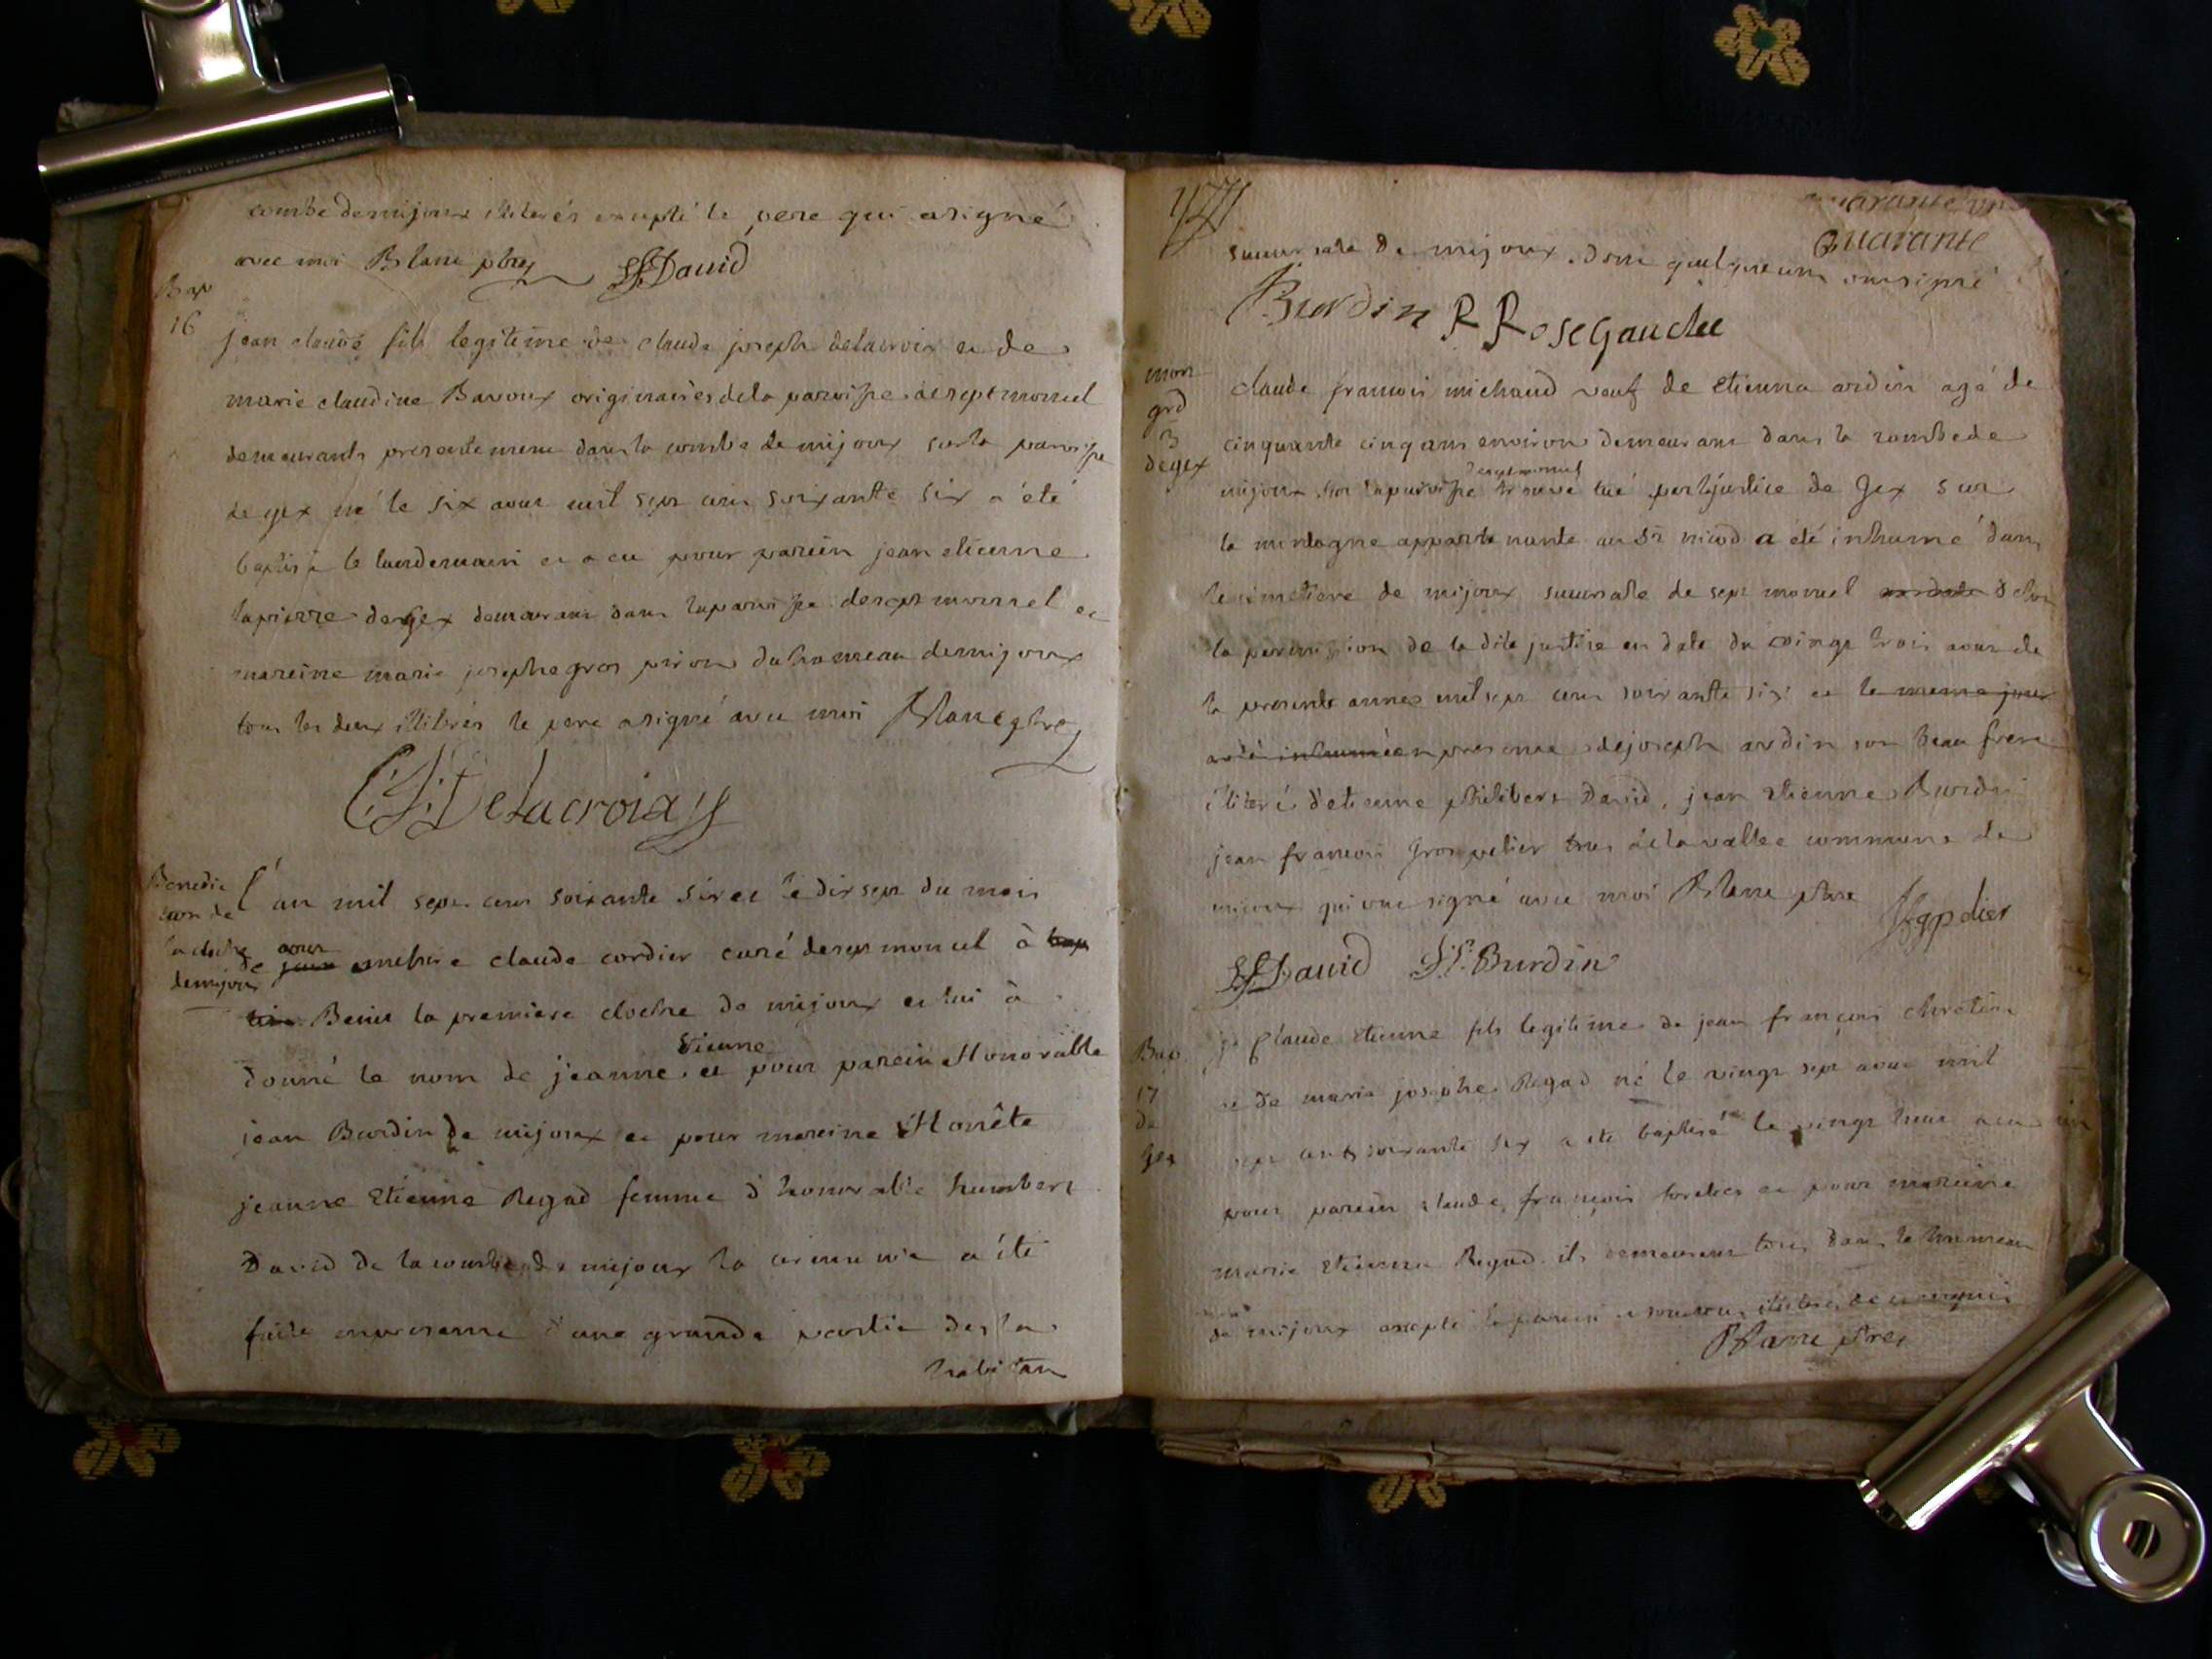 combe demijoux illiterés excepté le pere qui asigné
avec moi Blanc pbre David
Bap
16
jean claude fils legitime de claude joseph delacroix et de
marie claudine Bavoux originaires dela paroisse de septmoncel
demeurants presentement dans la combe de mijoux sur la paroisse
de gex né le six aout mil sept cent soixante six a été
baptisé le landemain et a eu pour parein jean etienne
lapierre de gex demeurant dans la paroisse de sept moncel et
mareine marie josephe gros piron du hameau demijoux
tous les deux illiterés le pere asigné avec moi Blanc pbre
C J Delacroix
Benedic
tion de
la cloche
demijoux
l'an mil sept cent soixante six et le dix sept du mois
aout
de messire claude cordier curé desept moncel à
Beni la premiere cloche de mijoux et lui à
Etienne
donné le nom de jeanne et pour parein Honorable
jean Burdin de mijoux et pour mareine Honête
jeanne Etienne Regad femme d'honorable humbert
David de la combe de mijoux la ceremonie a été
faite en presence d'une grande partie des
habitan
quarante
succursale de mijoux dont quelques uns ont signé
Burdin R Rosegauche
mort
grd
3
degex
claude francois michaud veuf de Etienna ardin agé de
cinquante cinq ans environ demeurant dans la combe de
desept moncel
mijoux sur la paroisse trouvé tué par la justice de Gex sur
la montagne appartenante au Sr nicod a été inhumé dans
le cimetiere de mijoux succursale de sept moncel
la permission de la dite justice en date du vingt trois aout de
la presente année mil sept cent soixante six et le meme jour
a été inhumé en presence de joseph ardin son beau frere
illiteré d'etienne philibert David, jean Etienne Burdin
jean francois Grospelier tous de la vallee commune de
mijoux qui ont signé avec moi Blanc pbre
David Burdin
Bap
17
de
Gex
claude Etienne fils legitime de jean françois chretin
et de marie josephe Regad né le vingt sept aout mil
sept cent soixante six a été baptisé le vingt huit
pour parein claude françois et pour mareine
marie Etienna Regad ils demeurent tous dans le hameau
de mijoux excepté le parein
Blanc pbre